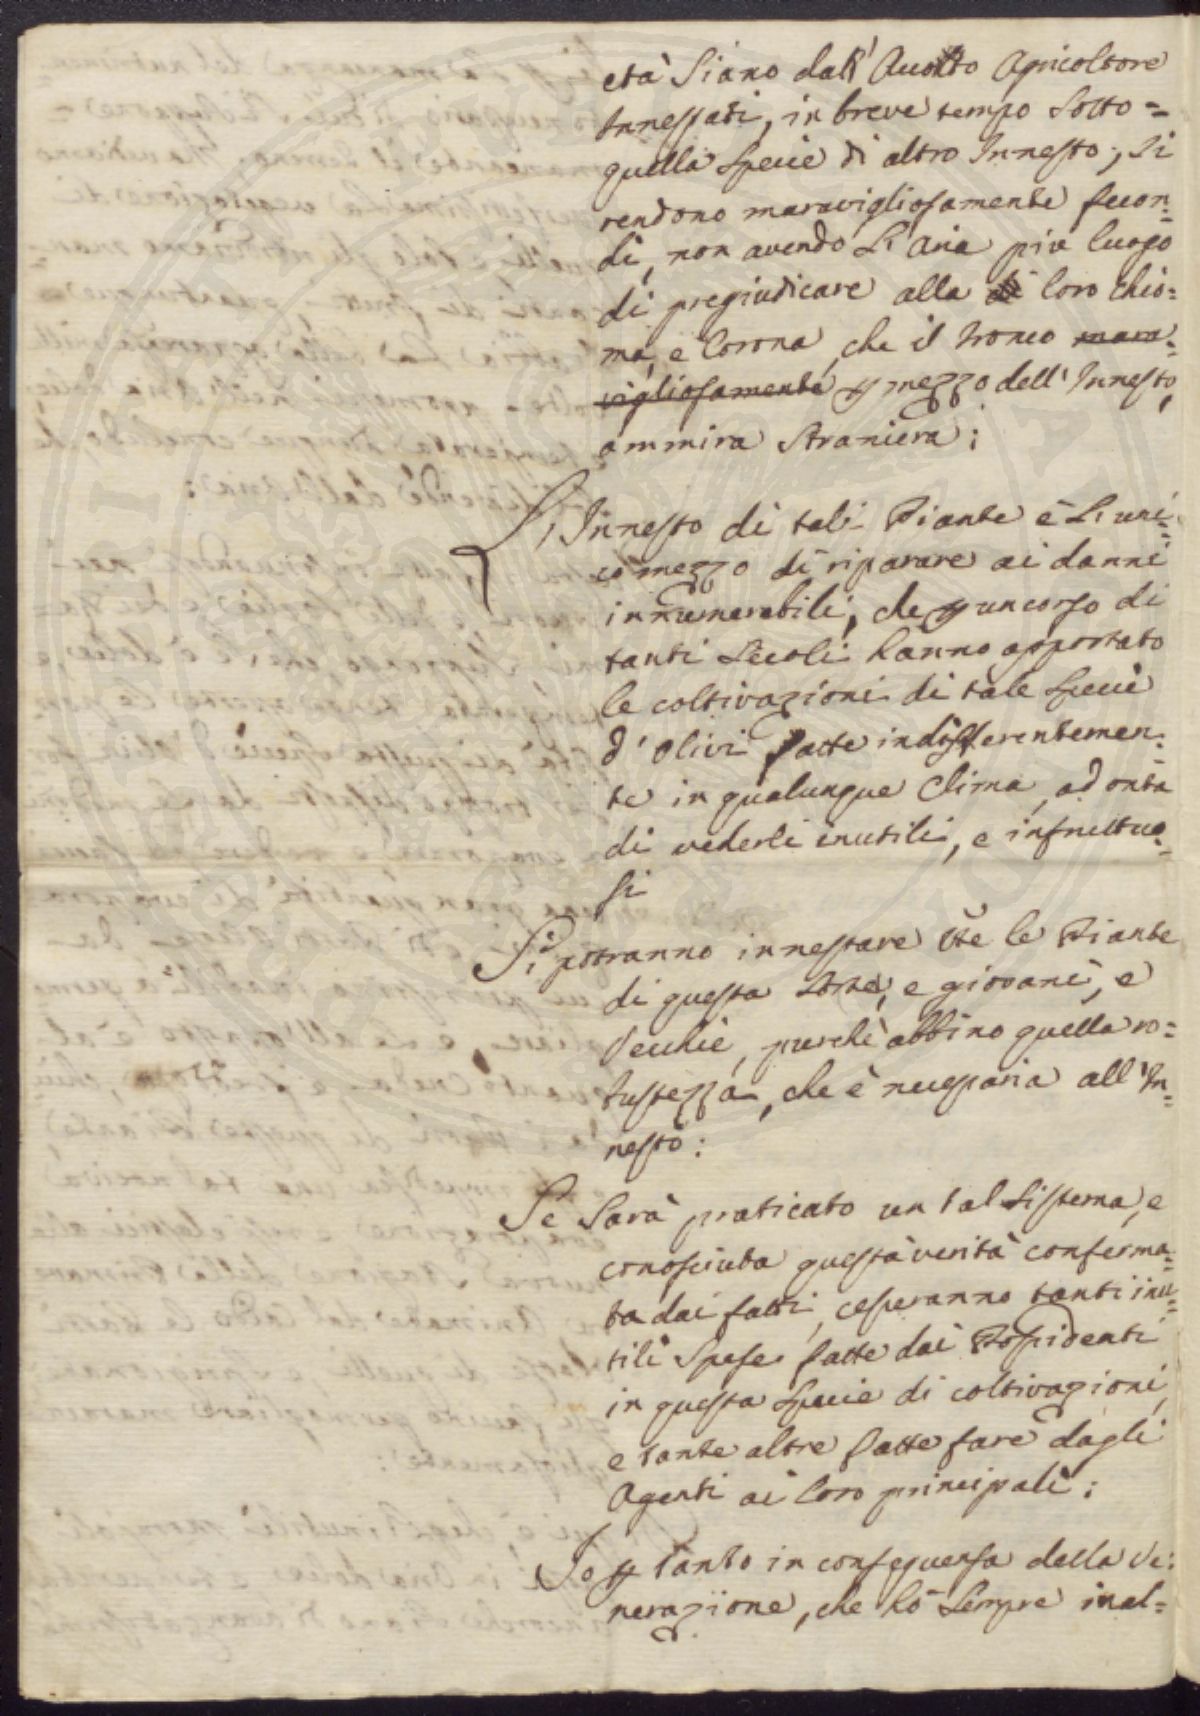 età Siano dall' Acuto Agricoltore
Innestati, in breve tempo Sotto=
quella Specie di altro Innesto; Si
rendono maravigliosamente fecon=
di, non avendo L'Aria più luogo
di pregiudicare alla loro Chio=
ma, e Corona, che il tronco mara=
vigliosamente p mezzo dell' Innesto,
ammira Straniera;
L'Innesto di tali Piante è L'uni=
co mezzo di riparare ai danni
innumerabili, che p un corso di
tanti Secoli hanno apportato
le coltivazioni di tale Specie
d'olivi fatte indifferentemen=
te in qualunque Clima, ad onta
di vederli inutili, e infruttuo=
si
Si potranno innestare tte le Piante
di questa Sorte, e giovani, e
Vecchie, purchè abbino quella ro=
bustezza, che è necessaria all'In=
nesto:
Se Sarà praticato un tal Sistema, e
conosciuta questa verità conferma=
ta dai fatti, cesseranno tanti inu=
tili Spese fatte dai Possidenti
in questa Specie di coltivazioni,
e tante altre fatte fare dagli
Agenti ai loro principali;
Io p tanto in conseguenza della Ve=
nerazione, che hò Sempre inal=